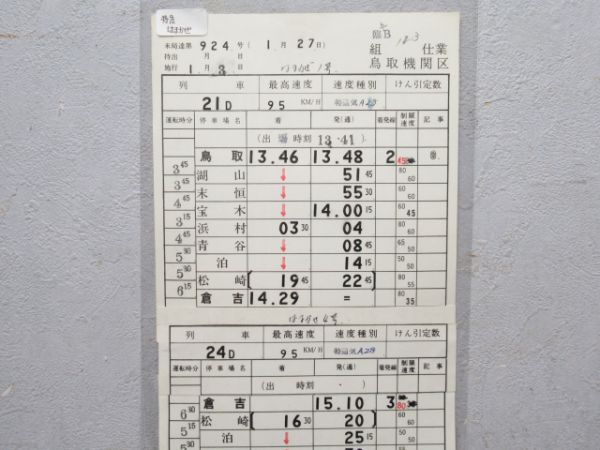 特急
はまかぜ
臨B
米局達第 924 号 ( 1 月 27 日)
組 仕業
持出 月 日
施行 1 月 3 日
はまかぜ1号
鳥取機関区
列 車 最高速度 速度種別 けん引定数
21D 95 KM/H A20
運転時分 停車場名 着 発(通) 着発線 制限速度 記事
(出場時刻 13.41)
鳥取 13.46 13.48 2 45
3 45 湖山 ↓ 51 45 80 60
3 45 末恒 ↓ 55 30 60
4 45 宝木 ↓ 14.00 15 60 45
3 15 浜村 03 30 04 80 60
4 45 青谷 ↓ 08 45 65 50
5 30 泊 ↓ 14 15 50 50
5 30 松崎 [ 19 45 22 45 ] 80 55
6 15 倉吉 14.29 = 80 35
はまかぜ4号
列 車 最高速度 速度種別 けん引定数
24D 95 KM/H A20
運転時分 停車場名 着 発(通) 着発線 制限速度 記事
(出 時刻 ・ )
倉吉 15.10 3 80
6 30 松崎 [ 16 30 20 ] 60 50
5 15 泊 ↓ 25 15 50 50